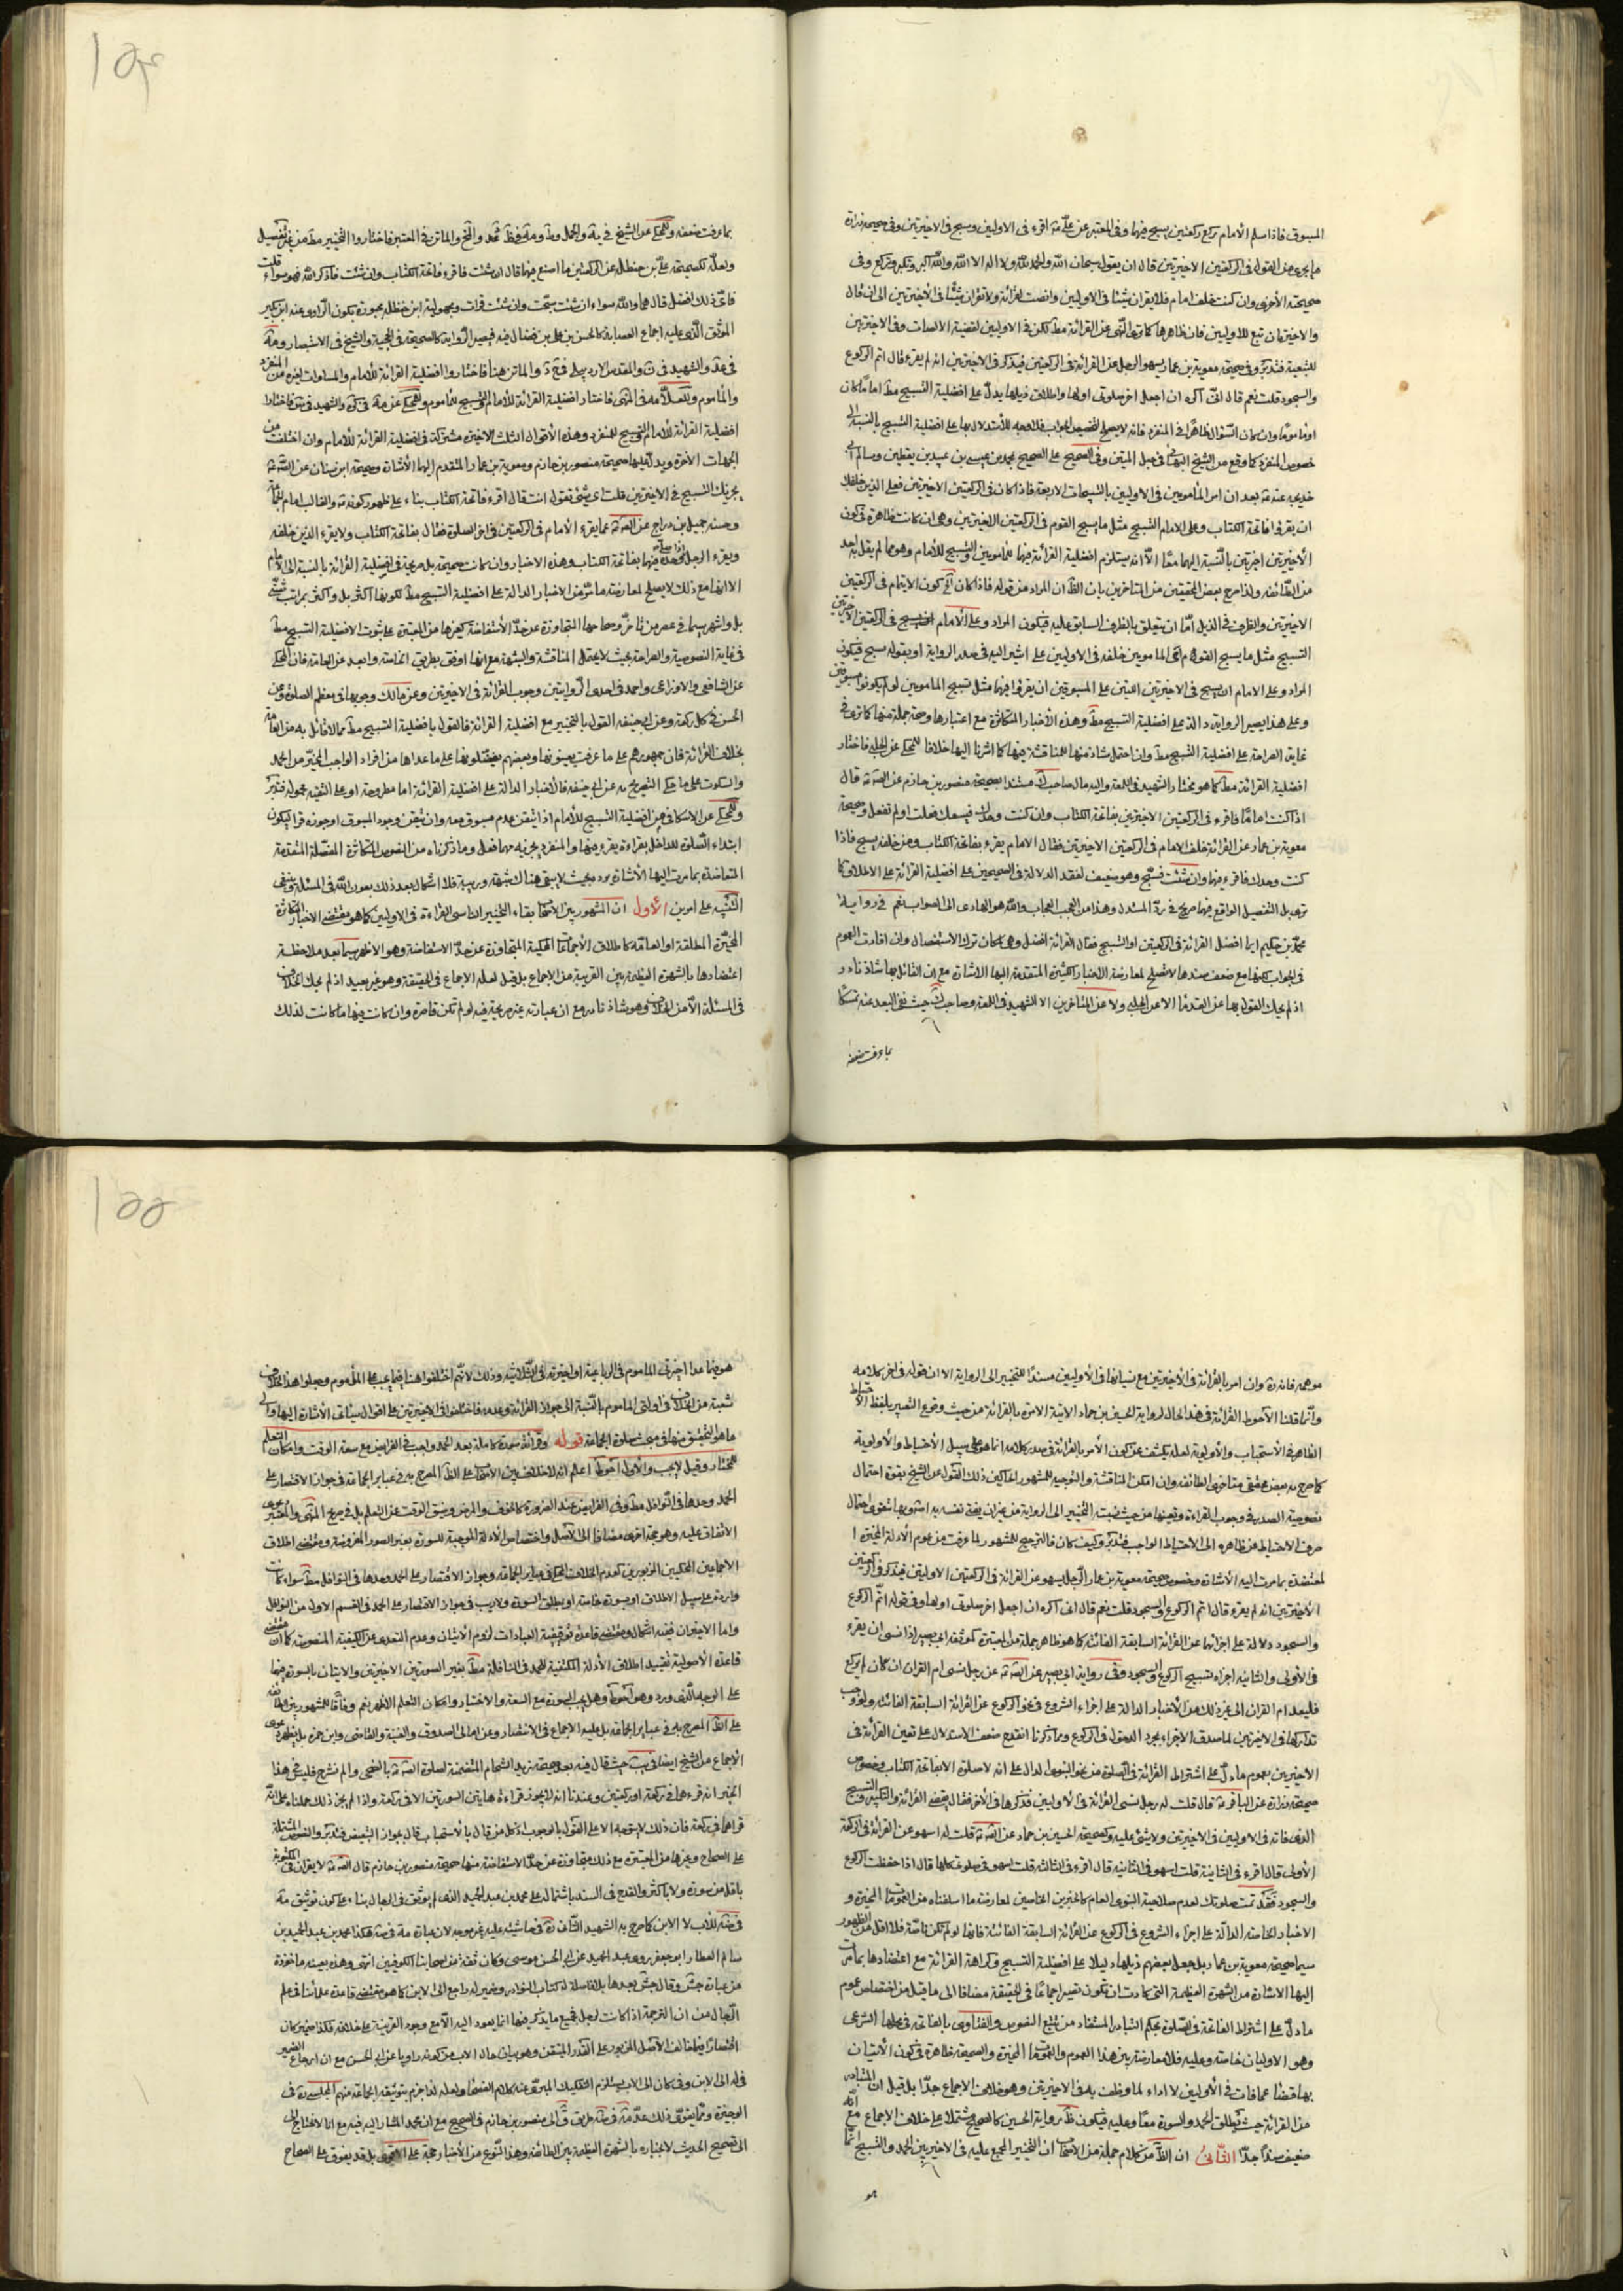 المسبوق فاذا سلم الامام ركع ركعتين يسبح فيهما وفى المعتبر عن على ع اقرء فى الاوليين وسبح فى الاخيرتين وفى صحيحة زرارة
ما يجزى من القول فى الركعتين الاخيرتين قال ان يقول سبحان الله والحمد لله ولا اله الا الله والله اكبر وتكبر وتركع وفى
صحيحته الأخرى وان كنت خلف امام فلا يقرأن شيئا فى الاوليين وانصت لقرائته ولا تقرأن شيئا فى الأخيرتين الى ان قال
والاخيرتان تبع للاوليين فان ظاهرها كما ترى النهى عن القرائة مط لكن فى الاوليين لقضية الانصات وفى الاخيرتين
للتبعية فتدبر وفى صحيحة معوية بن عمار يسهو الرجل عن القرائة فى الركعتين فيذكر فى الاخيرتين انه لم يقرء قال اتم الركوع
والسجود قلت نعم قال انى اكره ان اجعل اخر صلوتى اولها واطلاق ذيلها يدل على افضلية التسبيح مط اماما كان
او مأموما وان كان السؤال ظاهرا فى المنفرد فانه لا يصلح لتخصيص الجواب فلا وجه للأستدلال بها على افضلية التسبيح بالنسبة الى
خصوص المنفرد كما وقع من الشيخ البهائى فى حبل المتين وفى الصحيح على الصحيح بمحمد بن عيسى بن عبيد بن يقطين وسالم ابى
خديجه عنه ع بعد ان امر المأمومين فى الاوليين بالتسبيحات الاربعة فاذا كان فى الركعتين الاخيرتين فعلى الذين خلفك
ان يقرؤا فاتحة الكتاب وعلى الامام التسبيح مثل ما يسبح القوم فى الركعتين الاخيرتين وهى ان كانت ظاهرة فى كون
الأخيرتين اخيرتين بالنسبة اليهما معا الا انه يستلزم افضلية القرائة فيها للمأمومين والتسبيح للأمام وهو مما لم يقل به احد
من الطائفة ولذا صرح بعض المحققين من المتاخرين بان الظ ان المراد من قوله فاذا كان اه كون الايتمام فى الركعتين
الاخيرتين والظرف فى الذيل اما ان يتعلق بالظرف السابق عليه فيكون المراد وعلى الأمام التسبيح فى الركعتين الاخيرتين
التسبيح مثل ما يسبح القوم اى المامومين خلفه فى الاوليين على ما اشير اليه فى صدر الرواية او بقوله يسبح فيكون
المراد وعلى الامام ان يسبح فى الاخيرتين اللتين على المسبوقين ان يقرؤا فيها مثل تسبيح المامومين لو لم يكونوا مسبوقين
وعلى هذا يصير الرواية دالة على افضلية التسبيح مط وهذه الأخبار المتكاثرة مع اعتبارها وصحة جملة منها كما ترى فى
غاية الصراحة على افضلية التسبيح مط وان احتمل شاذ منها للمناقشة فيها كما اشرنا اليها خلافا للمحكى عن الحلبى فاختار
افضلية القرائة مط كما هو مختار الشهيد فى اللمعة واليه مال صاحب ك مستندا بصحيحة منصور بن حازم عن الص ع قال
اذا كنت اماما فاقرء فى الركعتين الاخيرتين بفاتحة الكتاب وان كنت وحدك فيسعك فعلت او لم تفعل وصحيحة
معوية بن عمار عن القرائة خلف الامام فى الركعتين الاخيرتين فقال الامام يقرء بفاتحة الكتاب ومن خلفه يسبح فاذا
كنت وحدك فاقرء فيهما وان شئت فسبح وهو ضعيف لفقد الدلالة فى الصحيحين على افضلية القرائة على الاطلاق كما
ترى بل التفصيل الواقع فيها صريح فى رد المستدل وهذا من العجب العجاب والله هو الهادى الى الصواب نعم فى رواية
محمد بن حكيم ايما افضل القرائة فى الركعتين او التسبيح فقال القرائة افضل وهى كان ترك الاستفصال وان افادت العموم
فى الجواب لكنها مع ضعف سندها لا تصلح لمعارضة الاخبار الكثيرة المتقدمة اليها الاشارة مع ان القائل بها شاذ نادر
اذ لم يحك القول بها عن القدما الا عن الحلبى ولا عن المتأخرين الا الشهيد فى اللمعة وصاحب ك حيث نفى البعد عنه تمسكا
بما عرفت ضعفه
بما عرفت ضعفه وللمحكى عن الشيخ فى ية والجمل وط ومة فى ظ
ولعله لصحيحة على بن حنظلة عن الركعتين ما اصنع فيهما قال ان شئت فاقرء فاتحة الكتاب وان شئت فاذكر الله فهو سواء قلت
فاى ذلك افضل قال هما والله سواء ان شئت سبحت وان شئت قرات ومجهولية ابن حنظلة مجبورة بكون الراوى عنه ابن بكير
الموثق الذى عليه اجماع العصابة كالحسن بن على بن فضال فيه فيصير الرواية كالصحيحة فى الحجية والشيخ فى الاستبصار
افضلية القرائة للأمام والتسبيح للمنفرد وهذه الأقوال الثلث الاخيرة مشتركة فى افضلية القرائة للأمام وان اختلفت من
الجهات الاخرة ويدل عليها صحيحة منصور بن حازم ومعوية بن عمار المتقدم اليها الأشارة وصحيحة ابن سنان عن الص ع
يجزيك التسبيح فى الاخيرتين قلت اى شئ تقول انت قال اقرء فاتحة الكتاب بناء على ظهور كونه ع والغالب امام الجماعة
وحسنة جميل بن دراج عن الص ع عما يقرء الأمام فى الركعتين فى اخر الصلوة فقال بفاتحة الكتاب ولا يقرء الذين خلفه
ويقرء الرجل اذا صلى وحده فيها بفاتحة الكتاب وهذه الاخبار وان كانت صحيحة بل صريحة فى افضلية القرائة بالنسبة الى الامام
الا انها مع ذلك لا يصلح لمعارضة ما مر من الاخبار الدالة على افضلية التسبيح مط لكونها اكثر بل واكثر بمراتب شتى
بل واشهر سيما فى عصر من تاخر وصحاحها المتجاوزة عن حد الأستفاضة كغيرها من المعتبرة على ثبوت الافضلية التسبيح مط
فى غاية النصوصية والصراحة بحيث لا يحتمل المناقشة والشبهة مع انها اوفق بطريق الخاصة وابعد عن العامة فان المحكى
عن الشافعى والاوزاعى واحمد فى احدى الروايتين وجوب القرائة فى الاخيرتين وعن مالك وجوبها فى معظم الصلوة وعن
الحسن فى كل ركعة وعن ابى حنيفه القول بالتخيير مع افضلية القرائة فالقول بافضلية التسبيح مط مما لا قائل به من العامة
بخلاف القرائة فان جمهورهم على ما عرفت يعينونها وبعضهم يفضلونها على ما عداها من افراد الواجب المخير من الحمد
والسكوت على ما حكى التصريح به عن ابى حنيفه فالأخبار الدالة على افضلية القرائة اما مطروحة او على التقية محمولة فتدبر
وللمحكى عن الاسكافى من افضلية التسبيح للأمام اذا تيقن عدم مسبوق معه وان تيقن وجود المسبوق او جوزه قرا ليكون
ابتداء الصلوة للداخل بقراءة يقرء فيها والمنفرد يجزيه مهما فعل وما ذكرناه من النصوص المتكاثرة المفصلة المتقدمة
المتعاضدة بما مرت اليها الأشارة يرده بحيث لا يبقى هناك شبهة وريبة فلا اشكال بعد ذلك بعون الله فى المسئلة وينبغى
التنبيه على امرين الأول ان المشهور بين الاصحاب بقاء التخيير لناسى القراءة فى الاوليين كما هو مقتضى الاخبار المتكاثرة
المخيرة المطلقة او العامة كاطلاق الأجماعات المحكية المتجاوزة عن حد الاستفاضة وهو الاظهر سيما بعد ملاحظة
اعتضادها بالشهرة العظيمة بين القريبة من الاجماع بل قيل لعله الاجماع فى الحقيقة وهو غير بعيد اذ لم يحك الخلاف
فى المسئلة الا من الخلاف وهو شاذ نادر مع ان عبارته غير صريحة فيه لو لم تكن قاصرة وان كانت فيها ما كانت لذلك
موهمه فانه ره وان امر بالقرائة فى الأخيرتين مع نسيانها فى الأوليين مسندا للتخيير الى الرواية الا ان قوله فى اخر كلامه
وانما قلنا الأحوط القرائة فى هذا الحال لرواية الحسين بن حماد الاتية الامرة بالقرائة من حيث وقوع التعبير بلفظ الاحتياط
الظاهر فى الأستحباب والأولوية لعله يكشف عن كون الأمر بالقرائة فى صدر كلامه انما هو على سبيل الأحتياط والأولوية
كما صرح به بعض محققى متاخرى الطائفة وان امكن المناقشة والتوجيه للمشهور الحاكين ذلك القول عن الشيخ بقوة احتمال
نصوصية الصدر فى وجوب القراءة وتعينها من حيث نسبته التخيير الى الرواية من غير ان يفتى نفسه به
صرف الاحتياط عن ظاهره الى الاحتياط الواجب فتدبر وكيف كان فالترجيح للمشهور لما عرفت من عموم الأدلة المخيرة
المعتضدة بما مرت اليه الأشارة وخصوص صحيحة معوية بن عمار الرجل يسهو عن القرائة فى الركعتين الاوليتين فيذكر فى الركعتين
الأخيرتين انه لم يقرء قال اتم الركوع والسجود قلت نعم قال انى اكره ان اجعل اخر صلوتى اولها وفى قوله اتم الركوع
والسجود دلالة على اجزائها عن القرائة السابقة الفائتة كما هو ظاهر جملة من المعتبرة كموثقة ابى بصير اذا نسى ان يقرء
فى الأولى والثانية اجزاه تسبيح الركوع والسجود وفى رواية ابى بصير عن الص ع عن رجل نسى ام القران قال ان كان لم يركع
فليعد ام القران الى غير ذلك من الأخبار الدالة على اجزاء الشروع فى نحو الركوع عن القرائة السابقة الفائتة ولو وجب
تداركها فى الاخيرتين لما صدق الاجزاء بمجرد الدخول فى الركوع ومما ذكرنا انقدح ضعف الاستدلال على تعين القرائة فى
الاخيرتين بعموم ما دل على اشتراط القرائة فى الصلوة من نحو النبوى الدال على انه لا صلوة الا بفاتحة الكتاب وخصوص
صحيحة زرارة عن الباقر ع قال قلت له رجل نسى القرائة فى الأوليين فذكرها فى الأخر فقال يقضى القرائة والتكبير والتسبيح
الذى فاته فى الاوليين فى الاخيرتين ولا شئ عليه وكصحيحة الحسين بن حماد عن الص ع قلت له اسهو عن القرائة فى الركعة
الأولى قال اقرء فى الثانية قلت اسهو فى الثانية قال اقرء فى الثالثة قلت اسهو فى صلوتى كلها قال اذا حفظت الركوع
والسجود فقد تمت صلوتك لعدم صلاحية النبوى العام كالخبرين الخاصين لمعارضة ما اسلفناه من العمومات المخيرة و
الاخبار الخاصة الدالة على اجزاء الشروع فى الركوع عن القرائة السابقة الفائتة فانها لو لم تكن ناصة فلا اقل من الظهور
سيما صحيحة معوية بن عمار بل جعل بعضهم ذيلها دليلا على افضلية التسبيح وكراهة القرائة مع اعتضادها بما مرت
اليها الاشارة من الشهرة العظيمة التى كادت ان تكون تصير اجماعا فى الحقيقة مضافا الى ما قيل من اختصاص عموم
ما دل على اشتراط الفاتحة فى الصلوة بحكم التبادر المستفاد من تتبع النصوص والفتاوى بالفاتحة فى محلها الشرعى
وهو الاوليان خاصة وعليه فلا معارضة بين هذا العموم والعمومات المخيرة والصحيحة ظاهرة فى كون الأتيان
بها قضاء عما فات فى الأوليين لا اداء لما وظف به فى الاخيرتين وهو خلاف الاجماع جدا بل قيل ان المتبادر
من القرائة حيث يطلق الحمد والسورة معا وعليه فيكون ظ رواية الحسين كالصحيح مشتملة على خلاف الاجماع مع انه
ضعيف سندا جدا الثانى ان الظ من كلام جملة من الاصحاب ان التخيير المجمع عليه فى الاخيرتين الحمد والتسبيح انما
هو
هو فيما عدا اخيرتى الماموم فى الرباعية او اخيرته فى الثلاثية وذلك لانهم اختلفوا هنا فيما يجب على المأموم وجعلوا هذا الخلاف
شعبة من الخلاف فى اولتى الماموم بالنسبة الى جواز القرائة وعدمه فاختلفوا فى الاخيرتين على اقوال سياتى الأشارة اليها والى
ما هو التحقيق منها فى مبحث صلوة الجماعة قوله وقرائة سورة كاملة بعد الحمد واجب فى الفرايض مع سعة الوقت وامكان التعلم
للمختار وقيل لا يجب والأول احوط اعلم انه لا خلاف بين الأصحاب على الظ المصرح به فى عبائر الجماعة فى جواز الاقتصار على
الحمد وحدها فى النوافل مط وفى الفرايض عند الضرورة كالخوف والمرض وضيق الوقت عن التعلم بل فى صريح المنتهى والمعتبر دعوى
الأتفاق عليه وهو حجة اخرى مضافا الى الأصل واختصاص الأدلة الموجبة للسورة بغير الصور المفروضة ومقتضى اطلاق
الاجماعين المحكيين المزبورين كعدم الخلاف المحكى فى عبائر الجماعة وجواز الاقتصار على الحمد وحدها فى النوافل مط سواء كانت
واردة على سبيل الاطلاق او بسورة خاصة او بمطلق السورة ولا ريب فى جواز الاقتصار على الحمد فى القسم الاول من النوافل
واما الاخيران ففيه اشكال ومقتضى قاعدة توقيفية العبادات لزوم الاتيان وعدم التعدى عن الكيفية المنصوصة كما ان مقتضى
قاعدة الأصولية تقييد اطلاق الأدلة المكتفية بالحمد فى النافلة مط بغير الصورتين الاخيرتين والاتيان بالسورة فيها
على الوجه الذى ورد وهو احوط وهل يجب السورة مع السعة والاختيار وامكان التعلم الاظهر نعم وفاقا للمشهور بين الطائفة
على الظ المصرح به فى عبائر الجماعة بل عليه الاجماع فى الانتصار وعن امالى الصدوق والغنية والقاضى وابن حمزة بل يظهر دعوى
الأجماع من الشيخ ايضا فى يب حيث قال فيه بعد صحيحة زيد الشحام المتضمنة لصلوة الص ع بالضحى والم نشرح فليس فى هذا
الخبر انه قرءهما فى ركعة او ركعتين وعندنا انه لا يجوز قراءة هاتين السورتين الا فى ركعة واذا لم يجز ذلك حملناه على انه
قراهما فى ركعة فان ذلك لا يتوجه الا على القول بالوجوب اذ كل من قال بالأستحباب قال بجواز التبعيض فتدبر والنصوص المشتملة
على الصحاح وغيرها من المعتبرة مع ذلك متجاوزة عن حد الاستفاضة منها صحيحة منصور بن حازم قال الص ع لا يقرأن فى المكتوبة
باقل من سورة ولا باكثر والقدح فى السند باشتماله على محمد بن عبد الحميد الذى لم يوثق فى الرجال بناء على كون توثيق مة
فى صه للأب لا الابن كما صرح به الشهيد الثانى ره فى حاشيته عليه غير موجه لان عبارة مة فى صه هكذا محمد بن عبد الحميد بن
سالم العطار ابو جعفر روى عبد الحميد عن ابى الحسن موسى وكان ثقة من اصحابنا الكوفيين انتهى وهذه بعينه ماخوذة
من عبارة جش وقال جش بعدها بلا فاصلة له كتاب النوادر وضمير له راجع الى الابن كما هو مقتضى قاعدة علمائنا فى علم
الرجال من ان الترجمة اذا كانت لرجل فجميع ما يذكر فيها انما يعود اليه الا مع وجود القرينة على خلافه فكذا ضمير كان
اقتصارا فيما خالف الاصل المزبور على القدر المتيقن وهو بيان حال الاب من كونه راويا عن ابى الحسن مع ان ارجاع الضمير
فى له الى الابن وفى كان الى الاب يستلزم التفكيك المبرء عنه كلام الفصحاء ولعله لذا جزم بتوثيقه الجماعة منهم المجلسى ره فى
الوجيزة ومما يقوى ذلك عد مة فى صه طريق ق الى منصور بن حازم فى الصحيح مع ان محمد المشار اليه فيه مع انا لا نحتاج الى
الى تصحيح الحديث لانجباره بالشهرة العظيمة بين الطائفة وهذا النوع من الأخبار حجة على الاقوى بل قد يفوق على الصحاح